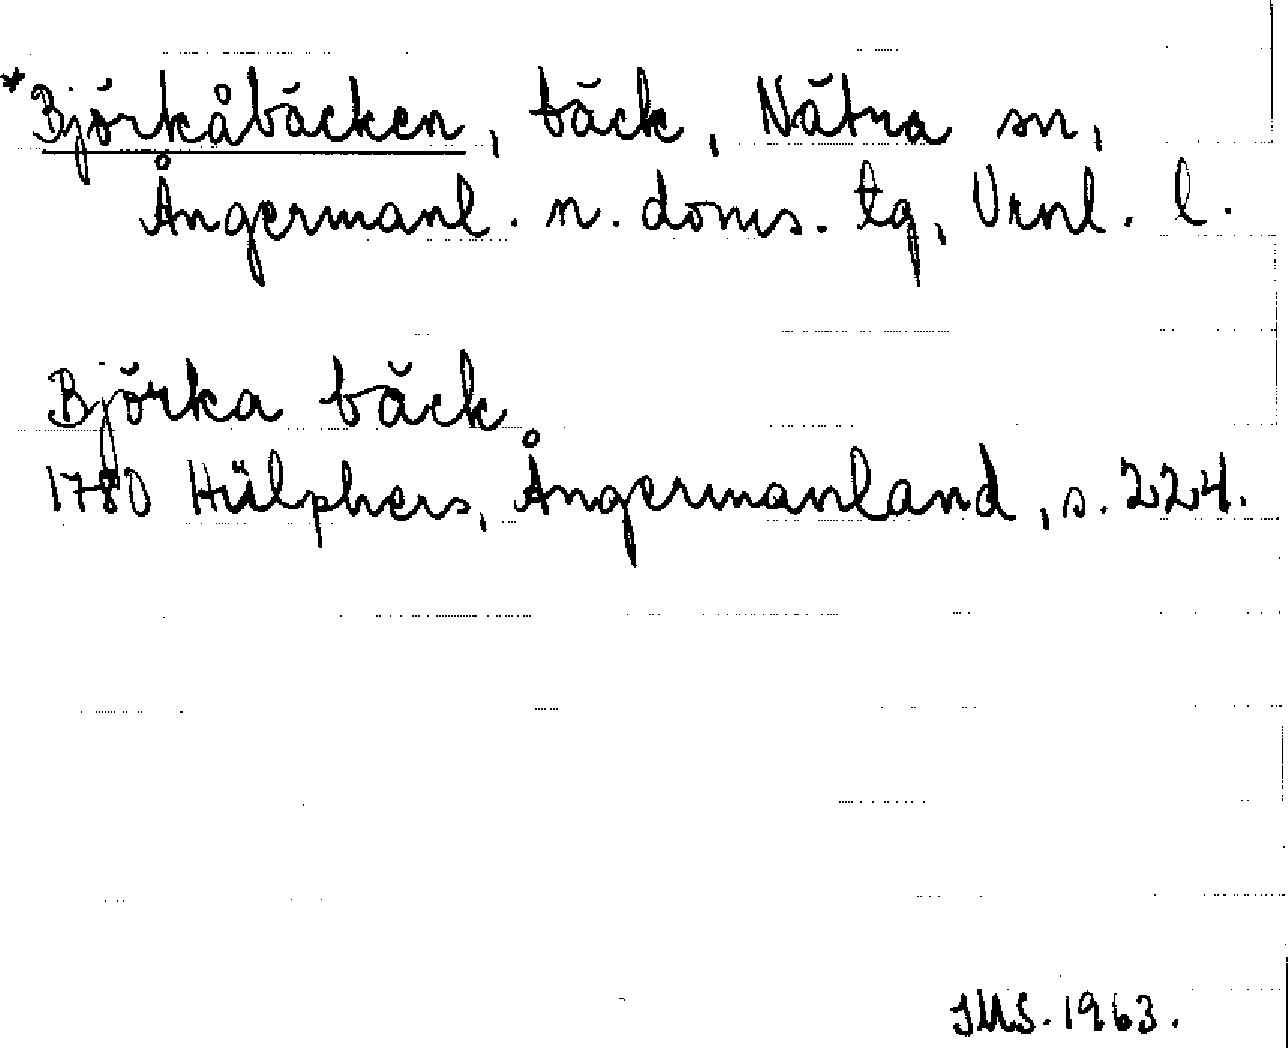 *Björkåbäcken, bäck, Nätra sn,
Ångermanl. n. doms. tg, Vrnl. l.
Björka bäck
1780 Hülphers, Ångermanland, s. 224.
JMS. 1963.